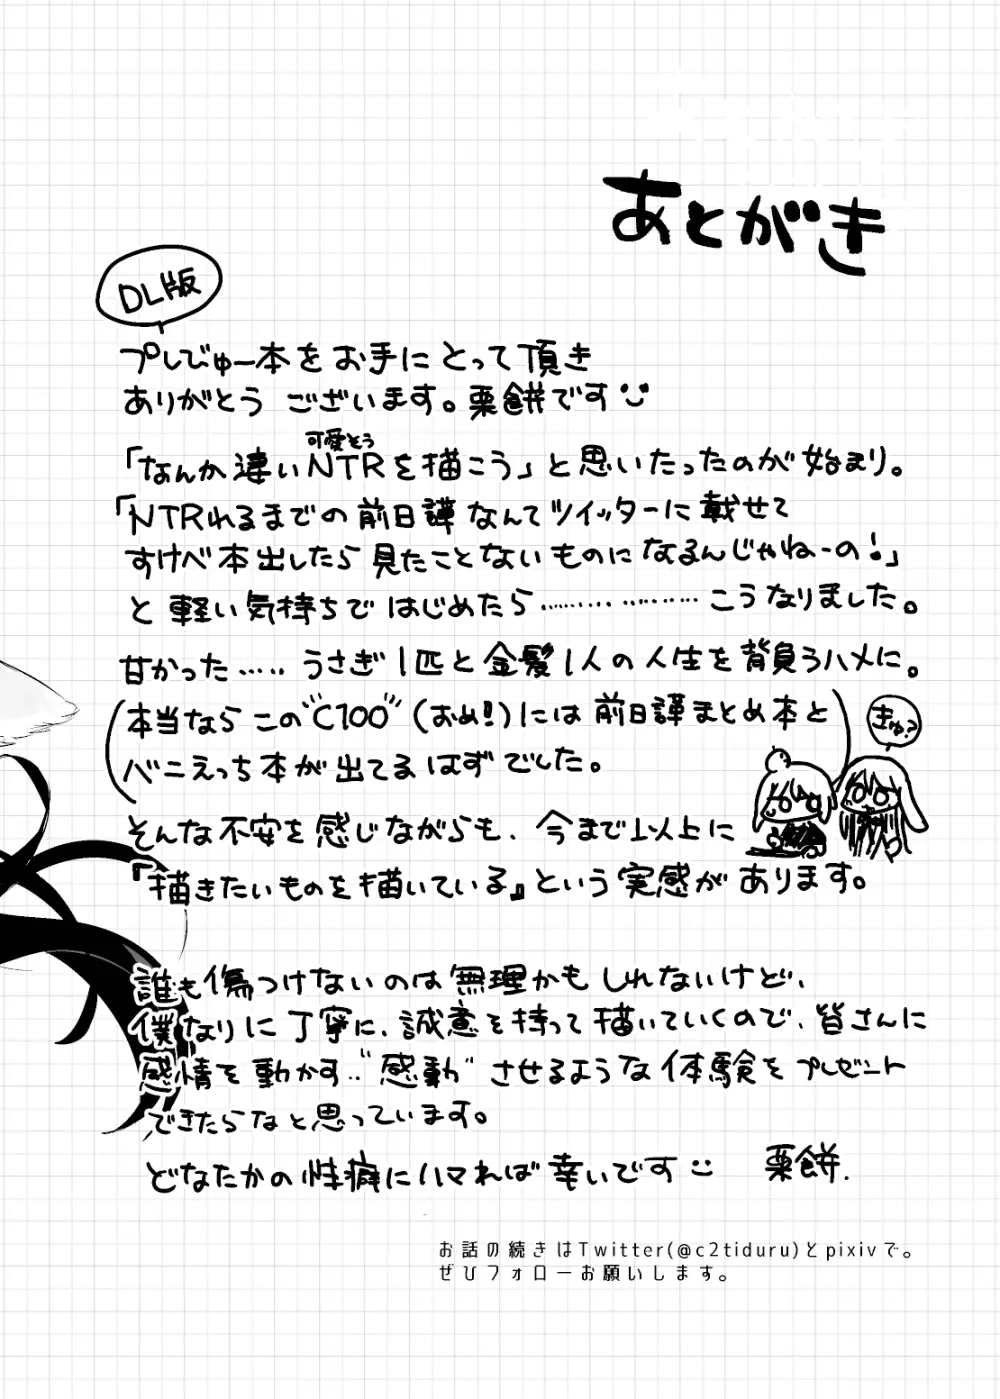 あとがき
DL版
プレびゅー本をお手にとって頂き
ありがとうございます。栗餅です
可愛そう
「なんか違いNTRを描こう」と思いたったのが始まり。
「NTRれるまでの前日譚なんてツイッターに載せて
すけべ本出したら見たことないものになるんじゃねーの!」
と軽い気持ちではじめたら………………こうなりました。
甘かった……うさぎ1匹と金髪1人の人生を背負うハメに。
(本当ならこの"C100"(おめ!)には前日譚まとめ本と
バニえっち本が出てるはずでした。)
きゅ?
そんな不安を感じながらも、今まで以上に
『描きたいものを描いている』という実感があります。
誰も傷つけないのは無理かもしれないけど、
僕なりに丁寧に、誠意を持って描いていくので、皆さんに
感情を動かす‥"感動"させるような体験をプレゼント
できたらなと思っています。
どなたかの性癖にハマれば幸いです 栗餅.
お話の続きはTwitter(@c2tiduru)とpixivで。
ぜひフォローお願いします。